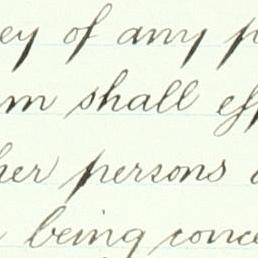 ey of any p
m shall eff
her persons
being conce